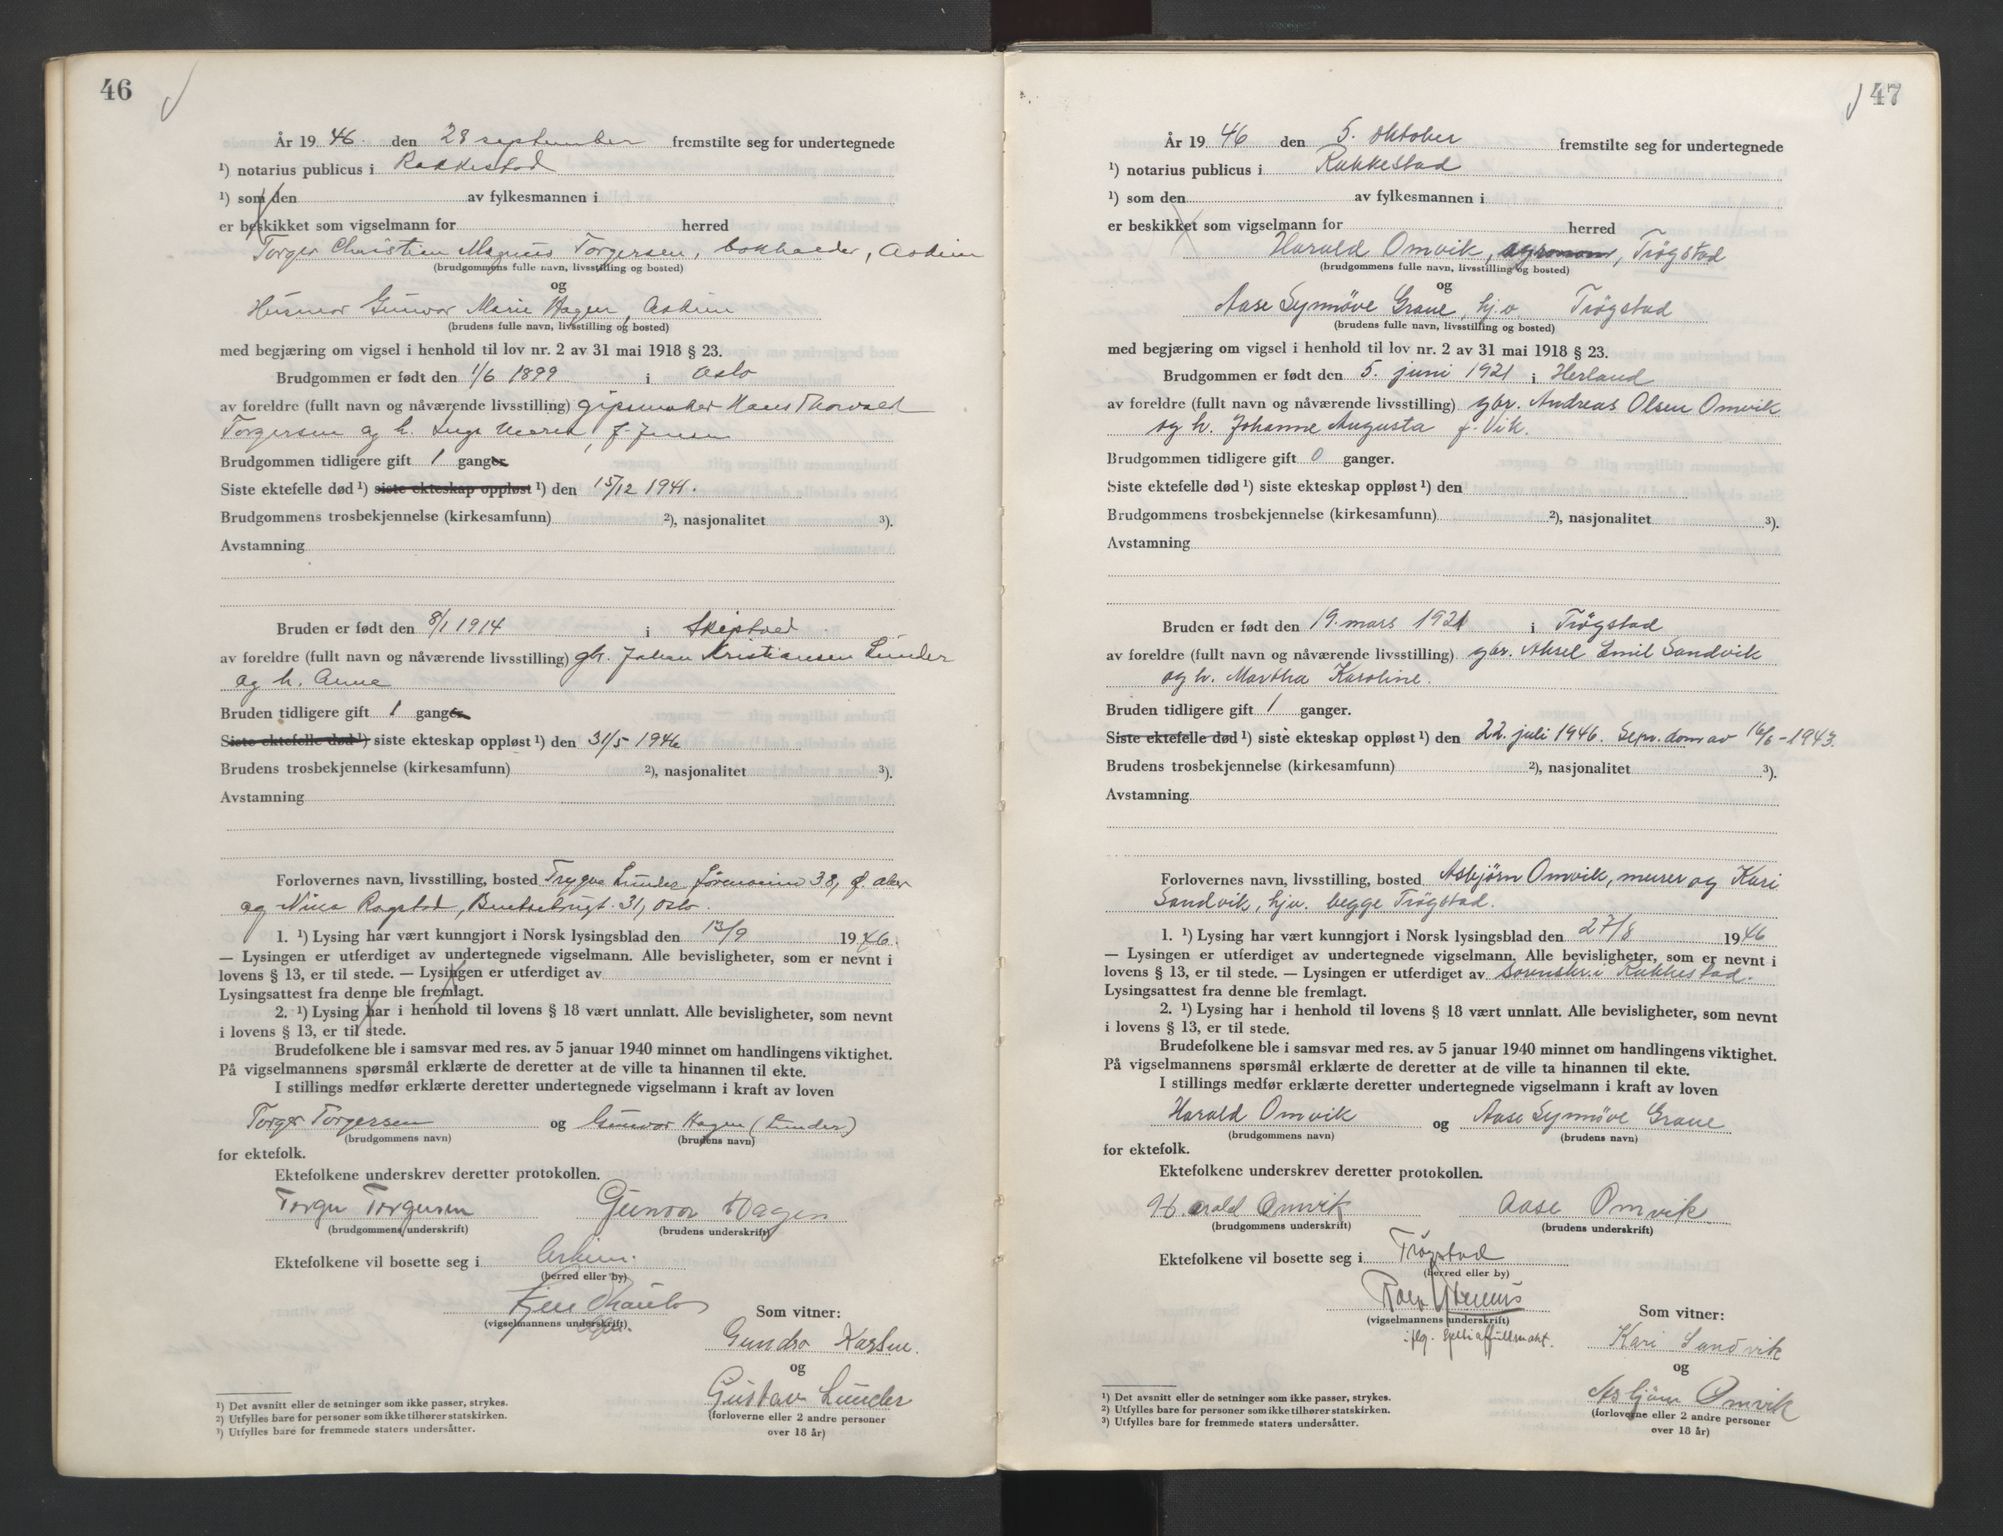 46
År 19 46. den 28 september fremstilte seg for undertegnede
¹) notarius publicus i Rakkestad
¹) som den av fylkesmannen i
er beskikket som vigselmann for herred
Torger Christian Magnus Torgersen, bokholder, Askim
(brudgommens fulle navn, livsstilling og bosted)
og
Husmor Gunvor Marie Hagen, Askim
(brudens fulle navn, livsstilling og bosted)
med begjæring om vigsel i henhold til lov nr. 2 av 31 mai 1918 § 23.
Brudgommen er født den 1/6 1899 i Oslo
av foreldre (fullt navn og nåværende livsstilling) gipsmaker Hans Thorvald
Torgersen og h. Inga Marie, f. Jensen
Brudgommen tidligere gift 1 ganger
Siste ektefelle død ¹) siste ekteskap oppløst ¹) den 15/12 1941.
Brudgommens trosbekjennelse (kirkesamfunn) ²), nasjonalitet ³).
Avstamning
Bruden er født den 8/1 1914 i Skiptvet
av foreldre (fullt navn og nåværende livsstilling) gbr. Johan Kristiansen Lunder
og h. Anne
Bruden tidligere gift 1 ganger
Siste ektefelle død ¹) siste ekteskap oppløst ¹) den 31/5 1946
Brudens trosbekjennelse (kirkesamfunn) ²), nasjonalitet ³).
Avstamning
Forlovernes navn, livsstilling, bosted Trygve Lunder 38, Ø. Aker
og Nils Rogstad, 31, Oslo.
1. ¹) Lysing har vært kunngjort i Norsk lysingsblad den 13/9 1946.
— Lysingen er utferdiget av undertegnede vigselmann. Alle bevisligheter, som er nevnt i
lovens § 13, er til stede. — Lysingen er utferdiget av
Lysingsattest fra denne ble fremlagt.
2. ¹) Lysing har i henhold til lovens § 18 vært unnlatt. Alle bevisligheter, som nevnt
i lovens § 13, er til stede.
Brudefolkene ble i samsvar med res. av 5 januar 1940 minnet om handlingens viktighet.
På vigselmannens spørsmål erklærte de deretter at de ville ta hinannen til ekte.
I stillings medfør erklærte deretter undertegnede vigselmann i kraft av loven
Torger Torgersen og Gunvor Hagen (Lunder)
(brudgommens navn) (brudens navn)
for ektefolk.
Ektefolkene underskrev deretter protokollen.
Torger Torgersen Gunvor Hagen
(brudgommens underskrift) (brudens underskrift)
Ektefolkene vil bosette seg i Askim.
(herred eller by)
Som vitner:
(vigselmannens underskrift)
Gundro Karlsen.
og
Gustav Lunder
(forloverne eller 2 andre personer
over 18 år)
¹) Det avsnitt eller de setninger som ikke passer, strykes.
²) Utfylles bare for personer som ikke tilhører statskirken.
³) Utfylles bare for fremmede staters undersåtter.
47
År 19 46 den 5. oktober fremstilte seg for undertegnede
¹) notarius publicus i Rakkestad
¹) som den av fylkesmannen i
er beskikket som vigselmann for herred
Harald Omvik, agronom, Trøgstad
(brudgommens fulle navn, livsstilling og bosted)
og
Aase Synnøve Grave, hj.v. Trøgstad
(brudens fulle navn, livsstilling og bosted)
med begjæring om vigsel i henhold til lov nr. 2 av 31 mai 1918 § 23.
Brudgommen er født den 5. juni 1921 i Herland
av foreldre (fullt navn og nåværende livsstilling) gbr. Andreas Olsen Omvik
og h. Johanne Augusta f. Vik.
Brudgommen tidligere gift 0 ganger.
Siste ektefelle død ¹) siste ekteskap oppløst ¹) den
Brudgommens trosbekjennelse (kirkesamfunn) ²), nasjonalitet ³).
Avstamning
Bruden er født den 19. mars 1921 i Trøgstad
av foreldre (fullt navn og nåværende livsstilling) gbr. Aksel Emil Sandvik
og h. Martha Karoline.
Bruden tidligere gift 1 ganger.
Siste ektefelle død ¹) siste ekteskap oppløst ¹) den 22. juli 1946. Sepr. dom av 16/6-1943.
Brudens trosbekjennelse (kirkesamfunn) ²), nasjonalitet ³).
Avstamning
Forlovernes navn, livsstilling, bosted Asbjørn Omvik, murer og Kari
Sandvik, hjv. begge Trøgstad.
1. ¹) Lysing har vært kunngjort i Norsk lysingsblad den 27/8 1946
— Lysingen er utferdiget av undertegnede vigselmann. Alle bevisligheter, som er nevnt i
lovens § 13, er til stede. — Lysingen er utferdiget av Sorenskr. i Rakkestad.
Lysingsattest fra denne ble fremlagt.
2. ¹) Lysing har i henhold til lovens § 18 vært unnlatt. Alle bevisligheter, som nevnt
i lovens § 13, er til stede.
Brudefolkene ble i samsvar med res. av 5 januar 1940 minnet om handlingens viktighet.
På vigselmannens spørsmål erklærte de deretter at de ville ta hinannen til ekte.
I stillings medfør erklærte deretter undertegnede vigselmann i kraft av loven
Harald Omvik og Aase Synnøve Grave
(brudgommens navn) (brudens navn)
for ektefolk.
Ektefolkene underskrev deretter protokollen.
Harald Omvik Aase Omvik
(brudgommens underskrift) (brudens underskrift)
Ektefolkene vil bosette seg i Trøgstad
(herred eller by)
Som vitner:
(vigselmannens underskrift)
iflg. spesialfullmakt.
Kari Sandvik
og
Asbjørn Omvik
(forloverne eller 2 andre personer
over 18 år)
¹) Det avsnitt eller de setninger som ikke passer, strykes.
²) Utfylles bare for personer som ikke tilhører statskirken.
³) Utfylles bare for fremmede staters undersåtter.